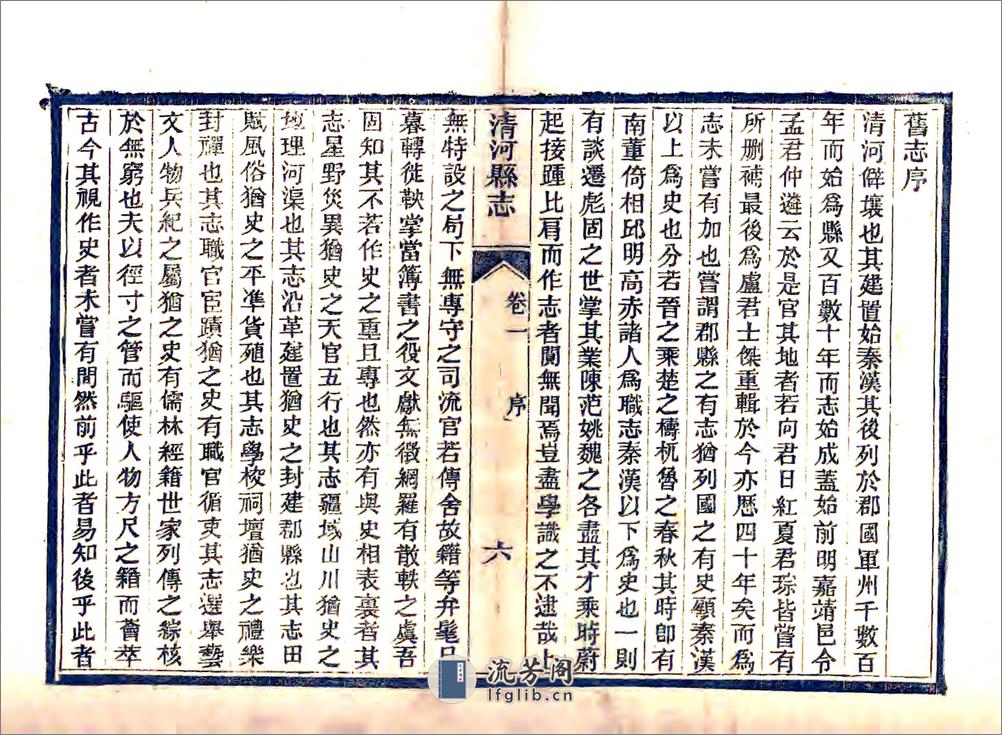 舊志序
清河僻壤也其建置始秦漢其後列於郡國軍州千數百
年而始爲縣又百數十年而志始成蓋始前明嘉靖邑令
孟君仲遴云於是官其地者若向君日紅夏君琮皆嘗有
所删補最後爲盧君士傑重輯於今亦歷四十年矣而爲
志未嘗有加也嘗謂郡縣之有志猶列國之有史顧秦漢
以上爲史也分若晉之乘楚之檮杌魯之春秋其時卽有
南董倚相邱明高赤諸人爲職志秦漢以下爲史也一則
有談遷彪固之世掌其業陳范姚魏之各盡其才乘時蔚
起接踵比肩而作志者闃無聞焉豈盡學識之不逮哉上
清河縣志
卷一
序
六
無特設之局下無專守之司流官若傳舍故籍等弁髦日
暮轉徙鞅掌當簿書之役文獻無徵網羅有散軼之虞吾
固知其不若作史之重且專也然亦有與史相表裏者其
志星野災異猶史之天官五行也其志疆域山川猶史之
地理河渠也其志沿革建置猶史之封建郡縣也其志田
賦風俗猶史之平準貨殖也其志學校祠壇猶史之禮樂
封禪也其志職官宦蹟猶之史有職官循吏其志選舉藝
文人物兵紀之屬猶之史有儒林經籍世家列傳之綜核
於無窮也夫以徑寸之管而驅使人物方尺之籍而薈萃
古今其視作史者未嘗有間然前乎此者易知後乎此者
流芳閣
lfglib.cn